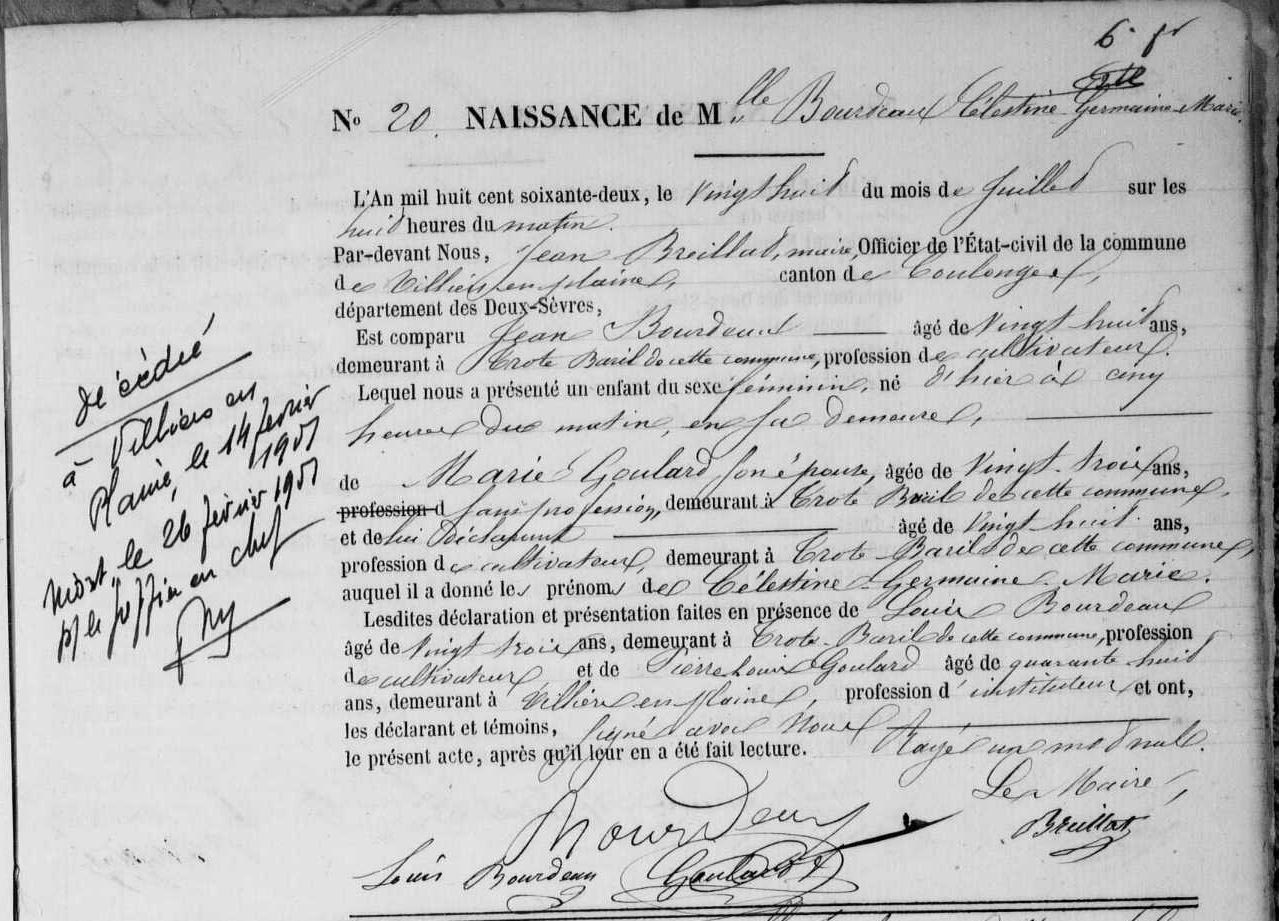 6 fr
No 20. NAISSANCE de Mlle Bourdeaux Célestine Germaine Marie.
L'An mil huit cent soixante-deux, le Vingt huit du mois de Juillet sur les
huit heures du matin.
Par-devant Nous, Jean Breillat, maire, Officier de l'État-civil de la commune
de Villiers en plaine, canton de Coulonges,
département des Deux-Sèvres,
Est comparu Jean Bourdeaux âgé de Vingt huit ans,
demeurant à Trote Baril de cette commune, profession de cultivateur.
Lequel nous a présenté un enfant du sexe féminin, né d'hier à cinq
heures du matin, en sa demeure,
de Marie Goulard son épouse, âgée de Vingt-trois ans,
profession d sans profession, demeurant à Trote Baril de cette commune,
et de lui déclarant âgé de Vingt huit ans,
profession de cultivateur, demeurant à Trote-Baril de cette commune,
auquel il a donné les prénoms de Célestine-Germaine-Marie.
Lesdites déclaration et présentation faites en présence de Louis Bourdeaux
âgé de Vingt trois ans, demeurant à Trote-Baril de cette commune, profession
de cultivateur, et de Pierre Louis Goulard âgé de quarante huit
ans, demeurant à Villiers en plaine, profession d'instituteur et ont,
les déclarant et témoins, signé avec Nous
le présent acte, après qu'il leur en a été fait lecture. Rayé un mot nul.
Le Maire,
Bourdeaux
Breillat
Louis Bourdeau Goulard
Décédé
à Villiers en
Plaine, le 14 février
1951
Mort le 26 février 1951
le greffier en chef